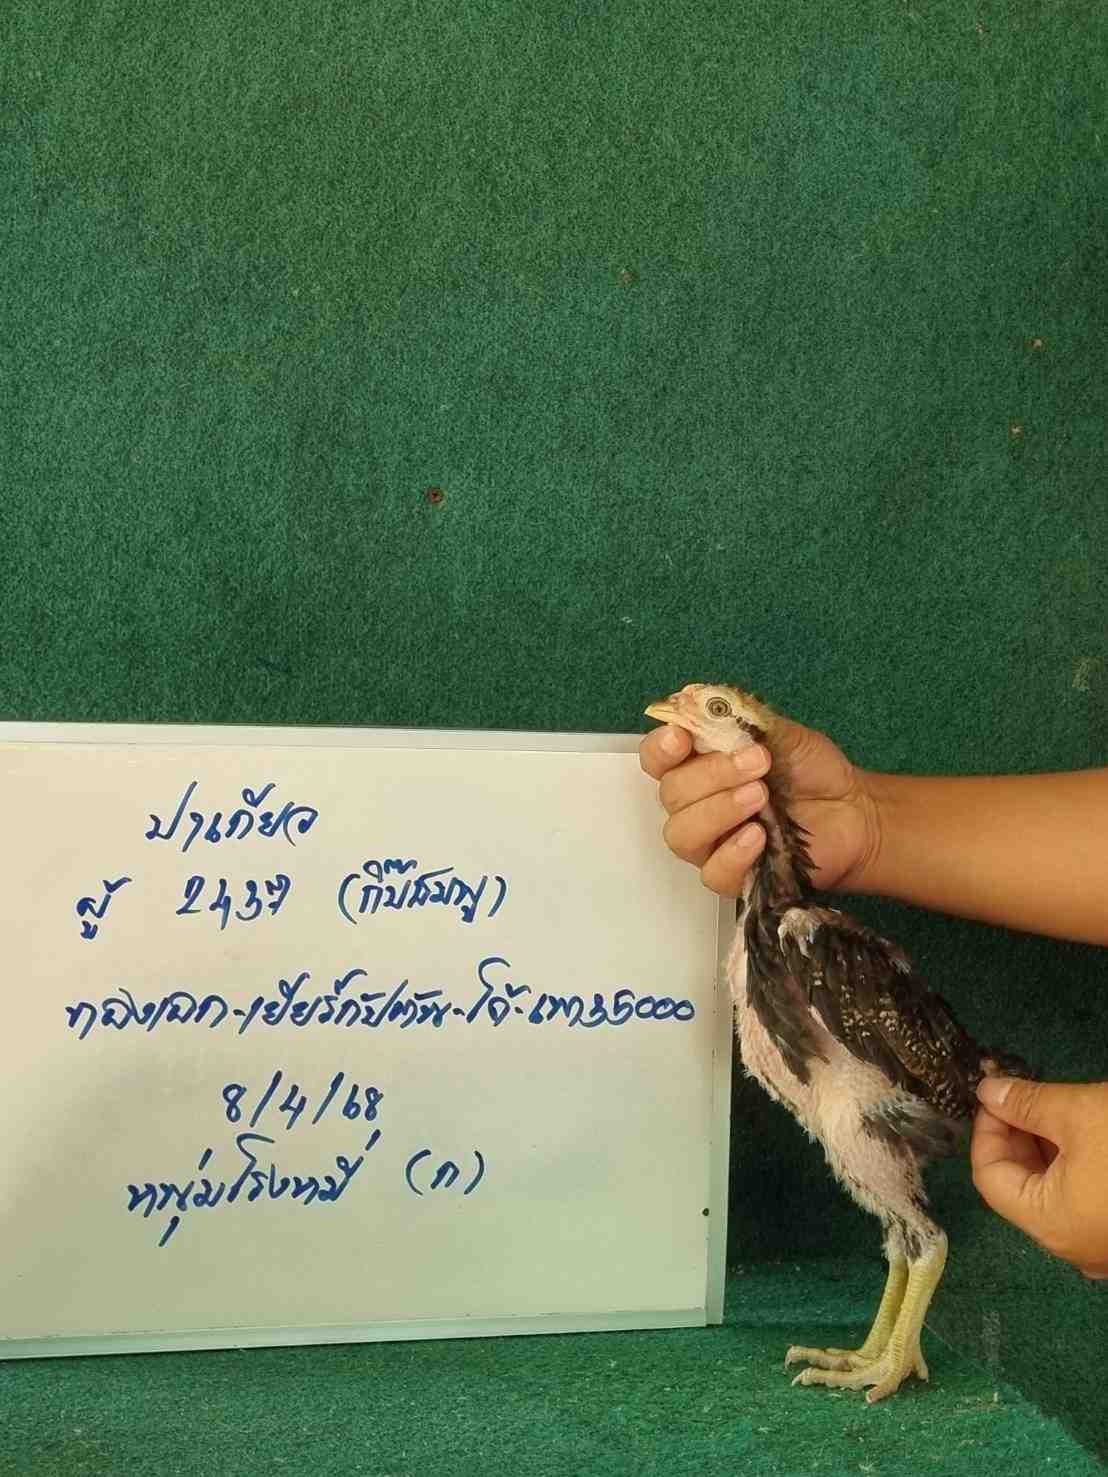 ปาเกียว
ผู้ 2437 (กิ๊บชมพู)
ทองเอก-เยียร์กัปตัน-โต้-เทา35000
8/4/68
หนุ่มโรงหมี่ (ก)